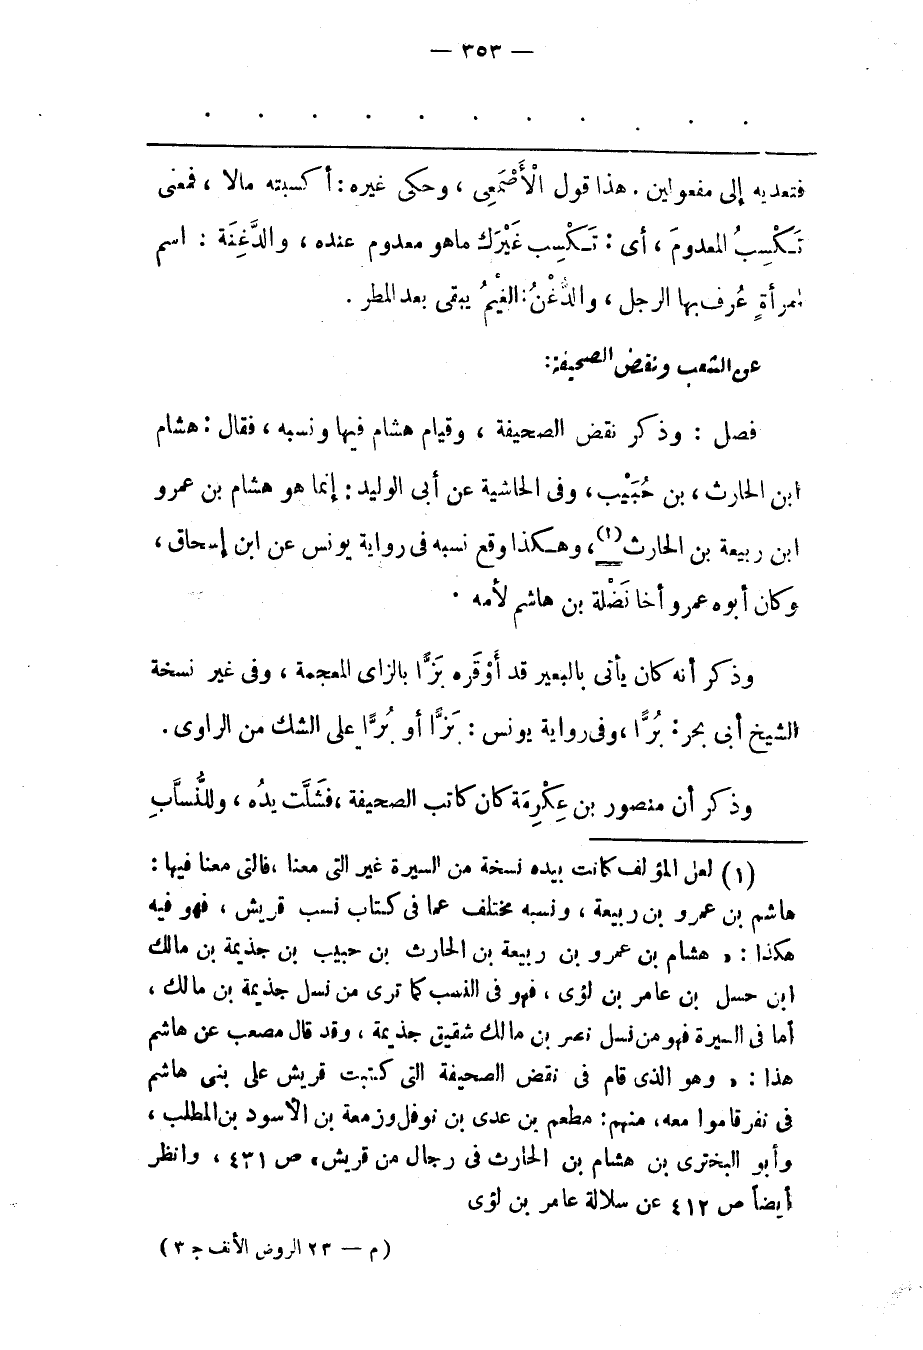 — ٣٥٣ —
. . . . . . . . . . .
فتعديه إلى مفعولين . هذا قول الْأَصْمَعِى ، وحكى غيره : أكسبته مالا ، فمعنى
تَـكْسِبُ المعدومَ ، أى : تَـكْسِب غَيْرَك ماهو معدوم عنده ، والدَّغِنَة : اسم
امرأةٍ عُرف بها الرجل ، والدَّغْنُ : الغَيْمُ يبقى بعد المطر .
عن الشعب ونقض الصحيفة :
فصل : وذكر نقض الصحيفة ، وقيام هشام فيها ونسبه ، فقال : هشام
ابن الحارث ، بن حُبَيْب ، وفى الحاشية عن أبى الوليد : إنما هو هشام بن عمرو
ابن ربيعة بن الحارث (١) ، وهـكذا وقع نسبه فى رواية يونس عن ابن إسحاق ،
وكان أبوه عمرو أخا نَضْلة بن هاشم لأمه .
وذكر أنه كان يأتى بالبعير قد أَوْقَره بَزًّا بالزاى المعجمة ، وفى غير نسخة
الشيخ أبى بحر : بُرًّا ، وفى رواية يونس : بَزًّا أو بُرًّا على الشك من الراوى .
وذكر أن منصور بن عِكْرِمَة كان كاتب الصحيفة ، فَشَلَّت يدُه ، وللنُّسَّابِ
(١) لعل المؤلف كانت بيده نسخة من السيرة غير التى معنا ، فالتى معنا فيها :
هاشم بن عمرو بن ربيعة ، ونسبه مختلف عما فى كتاب نسب قريش ، فهو فيه
هكذا : « هشام بن عمرو بن ربيعة بن الحارث بن حبيب بن جذيمة بن مالك
ابن حسل بن عامر بن لؤى ، فهو فى النسب كما ترى من نسل جذيمة بن مالك ،
أما فى السيرة فهو من نسل نصر بن مالك شقيق جذيمة ، وقد قال مصعب عن هاشم
هذا : « وهو الذى قام فى نقض الصحيفة التى كتبت قريش على بنى هاشم
فى نفر قاموا معه ، منهم : مطعم بن عدى بن نوفل وزمعة بن الأسود بن المطلب ،
وأبو البخترى بن هشام بن الحارث فى رجال من قريش » ص ٤٣١ ، وانظر
أيضاً ص ٤١٢ عن سلالة عامر بن لؤى
( م — ٢٣ الروض الأنف ج ٣ )